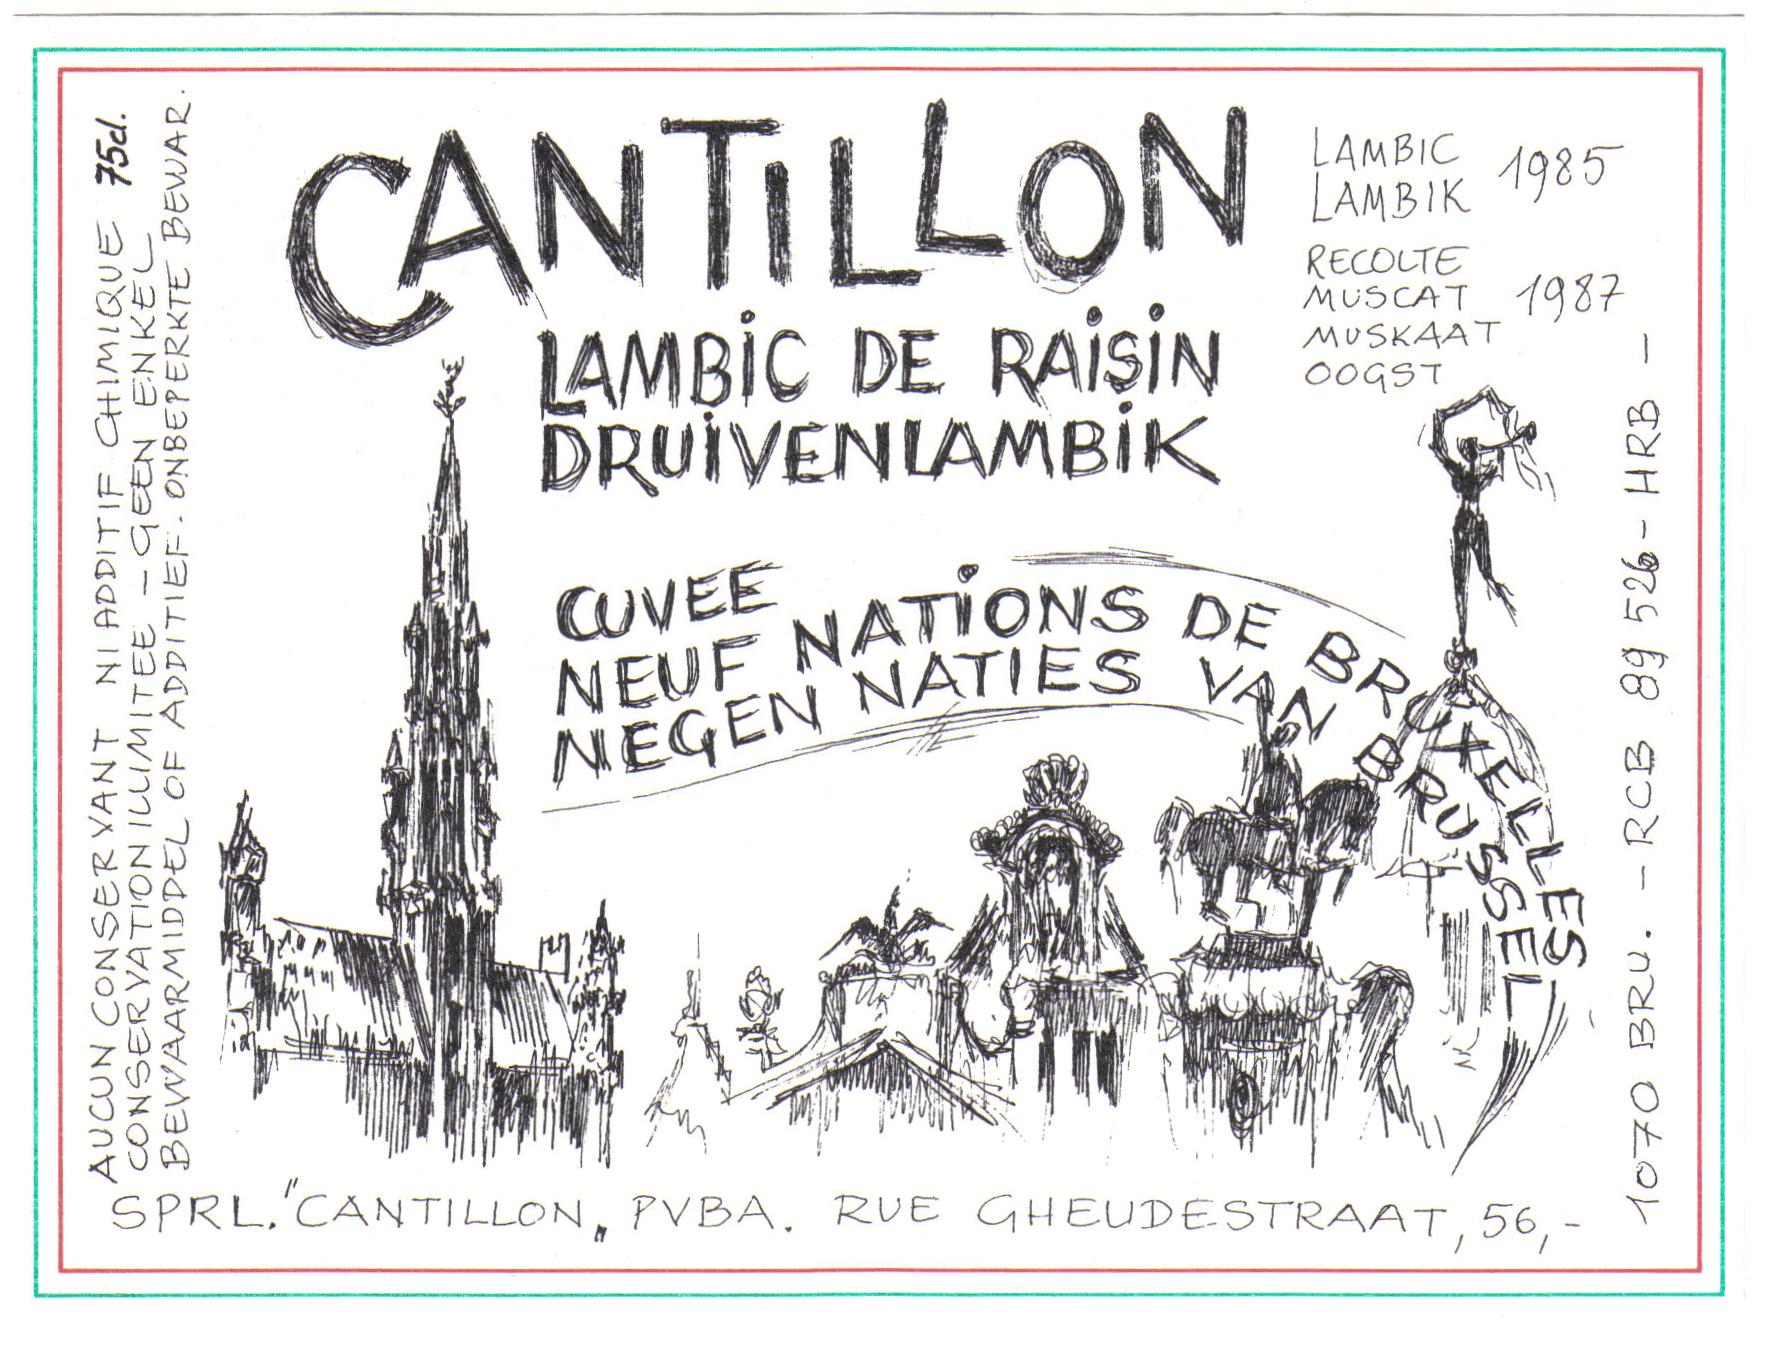 CANTILLON
LAMBIC DE RAISIN
DRUIVENLAMBIK
LAMBIC
LAMBIK 1985
RECOLTE
MUSCAT 1987
MUSKAAT
OOGST
CUVEE
NEUF NATIONS DE BRUXELLES
NEGEN NATIES VAN BRUSSEL
AUCUN CONSERVANT NI ADDITIF CHIMIQUE 75cl.
CONSERVATION ILLIMITEE - GEEN ENKEL
BEWAARMIDDEL OF ADDITIEF. ONBEPERKTE BEWAR.
SPRL. "CANTILLON„ PVBA. RUE GHEUDESTRAAT, 56,-
1070 BRU. - RCB 89 526 - HRB -